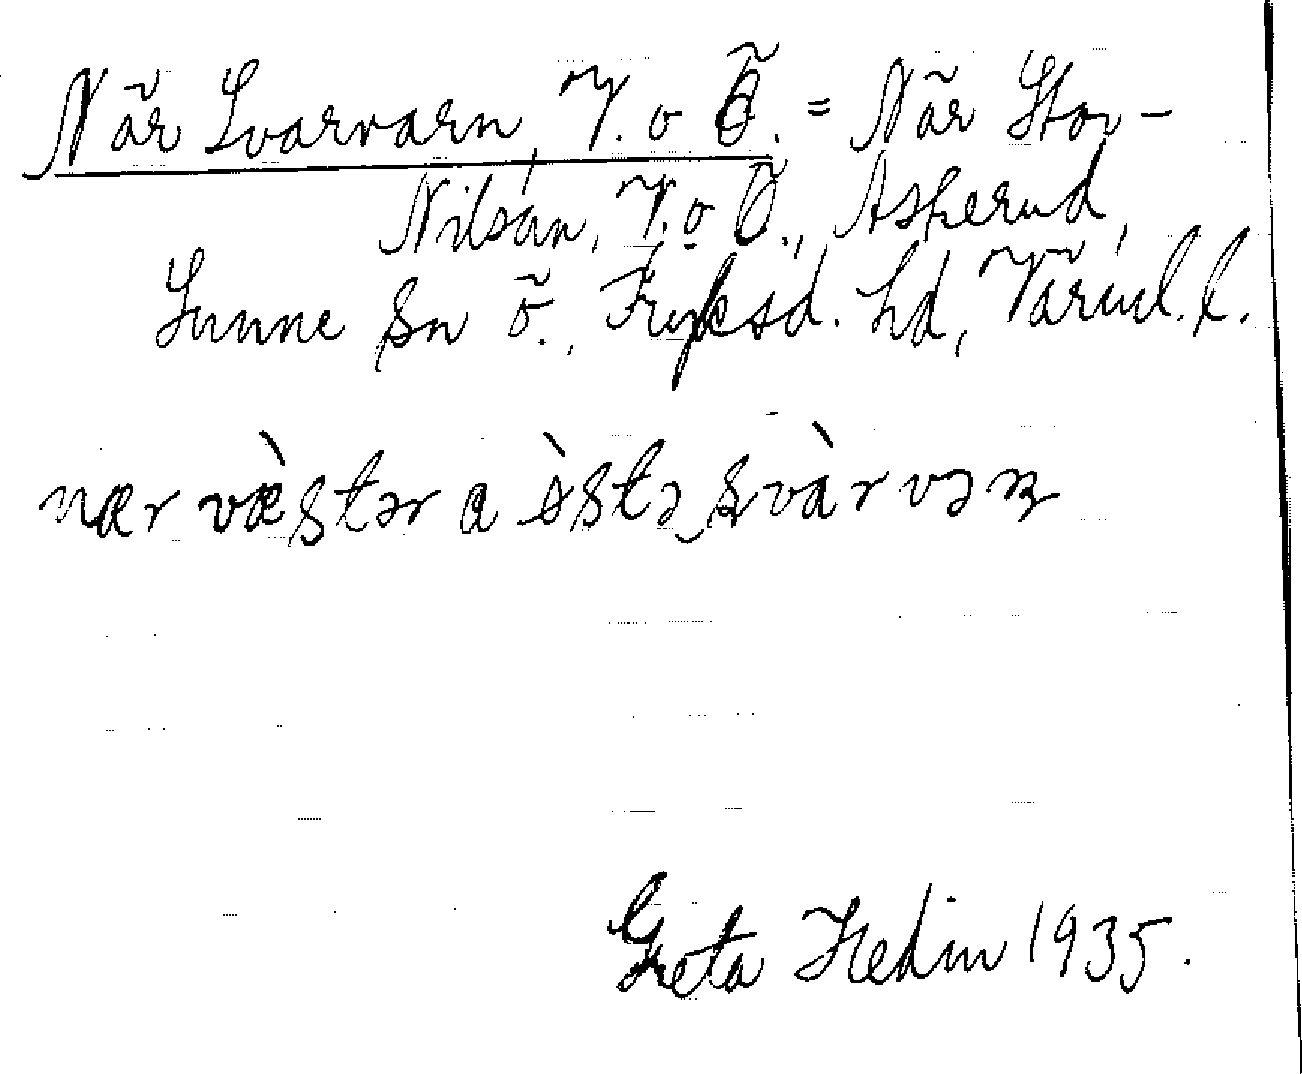 När Svarvarn, V. o Ö. = När Stor-
Nilsán, V. o Ö., Askerud,
Sunne sn ö., Fryksd. hd, Värml. l.
nær væ̀stər a ǜstə svàrvən
Greta Hedin 1935.